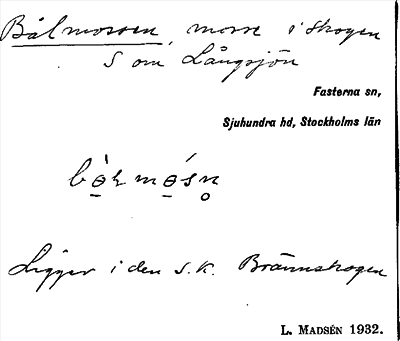 Bålmossen, mosse i skogen
S om Långsjön
Fasterna sn,
Sjuhundra hd, Stockholms län
Ligger i den s.k. Brännskogen
L. MADSÉN 1932.